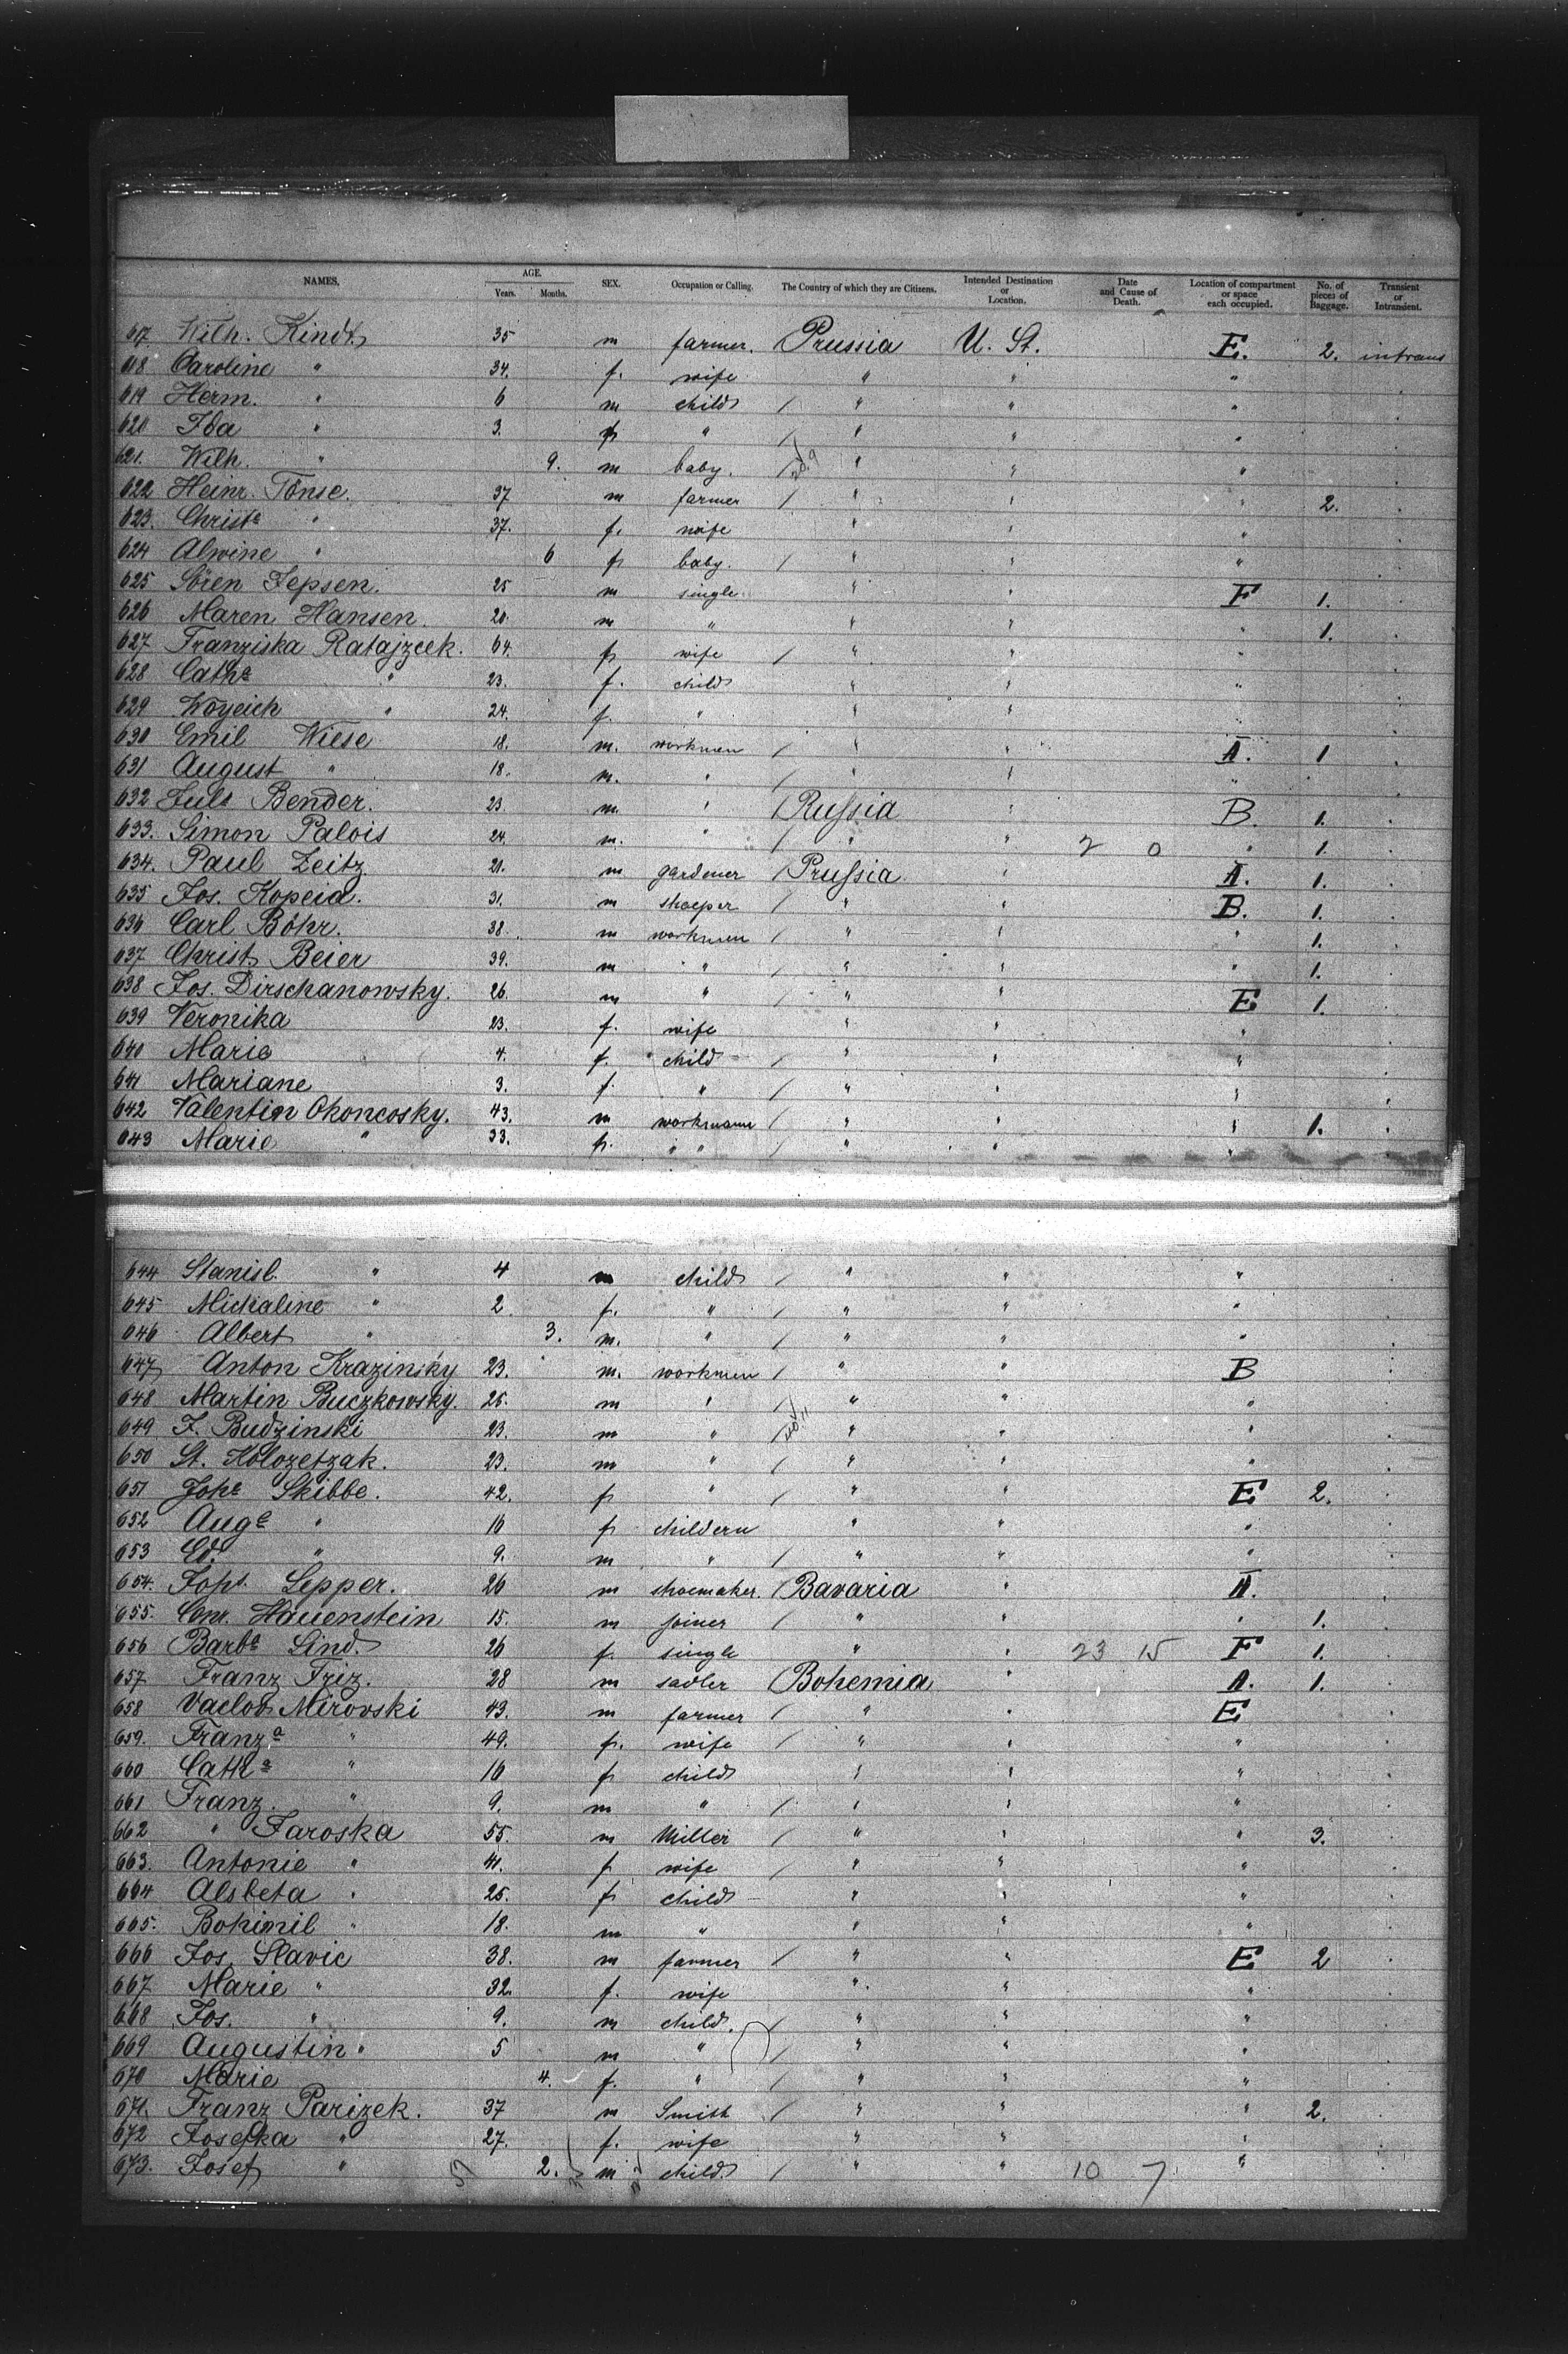 NAMES. AGE. Years. Months. SEX. Occupation or Calling. The Country of which they are Citizens. Intended Destination or Location. Date and Cause of Death. Location of compartment or space each occupied. No. of pieces of Baggage. Transient or Intransient.
617 Wilh. Kindt 35 m farmer. Prussia U. St. E. 2. intrans
618 Caroline " 34. f. wife " " "
619 Herm. " 6 m child / " " "
620 Ida " 3. f " / " " "
621. Wilh. " 9. m baby. / " " "
622 Heinr. Tönse. 37 m farmer / " " " 2.
623. Christe " 37. f. wife " " "
624 Alwine " 6 f baby. / " " "
625 Sören Jepsen. 25 m single " " F 1.
626 Maren Hansen. 20. m " " " " 1.
627 Franziska Ratajzcek. 64. f wife / " " "
628 Catha " 23. f. child " " "
629 Woyeich " 24. f. " " "
630 Emil Wiese 18. m. workmen / " " A. 1
631 August " 18. m. " / " " "
632 Juls Bender. 23. m. " / Russia " B. 1.
633. Simon Palois 24. m. " / " " 2 0 " 1.
634. Paul Zeitz 21. m gardener / Prussia " A. 1.
635 Jos. Kopeia. 31. m / " " B. 1.
636 Carl Böhr. 38. m workmen / " " " 1.
637 Christ Beier 39. m " / " " " 1.
638 Jos. Dirschanowsky. 26. m " / " " E 1.
639 Veronika 23. f. wife " " "
640 Marie 4. f. child / " " "
641 Mariane 3. f. " / " " "
642 Valentin Okoncosky. 43. m workmann / " " " 1.
643 Marie " 33. f. " " / " " "
644 Stanisl. " 4 m child / " " "
645 Michaline " 2 f. " / " " "
646 Albert " 3. m. " / " " "
647 Anton Krazinsky 23. m. workmen / " " B
648 Martin Buczkowsky. 25. m " / " " "
649 F. Budzinski 23. m " / " " "
650 St. Kolozetzak. 23. m " / " " "
651 Johe Skibbe. 42. f " / " " E 2.
652 Auge " 10 f childern " " "
653 Ed. " 9. m " / " " "
654. Johs. Lepper. 26 m shoemaker. / Bavaria " A.
655. Conr. Hauenstein 15. m joiner / " " " 1.
656 Barba Lind 26 f. single " " 23 15 F 1.
657 Franz Friz. 28 m sadler / Bohemia " A. 1.
658 Vaclov Mirovski 43. m farmer / " " E
659. Franza " 49. f. wife / " " "
660 Catha " 10 f child " " "
661 Franz. " 9. m " / " " "
662 " Jaroska 55. m Miller / " " " 3.
663. Antonie " 41. f wife / " " "
664 Alsbeta " 25. f child " " "
665. Bohimil " 18. m " " " "
666 Jos. Slavic 38. m farmer / " " E 2
667. Marie " 32. f. wife " " "
668 Jos. " 9. m child. / " " "
669 Augustin " 5 m " / " " "
670 Marie 4. f. " / " " "
671. Franz Parizek. 37 m Smith / " " " 2.
672 Josefka " 27. f. wife " " "
673. Josef " 2. m child / " " 10 7 "